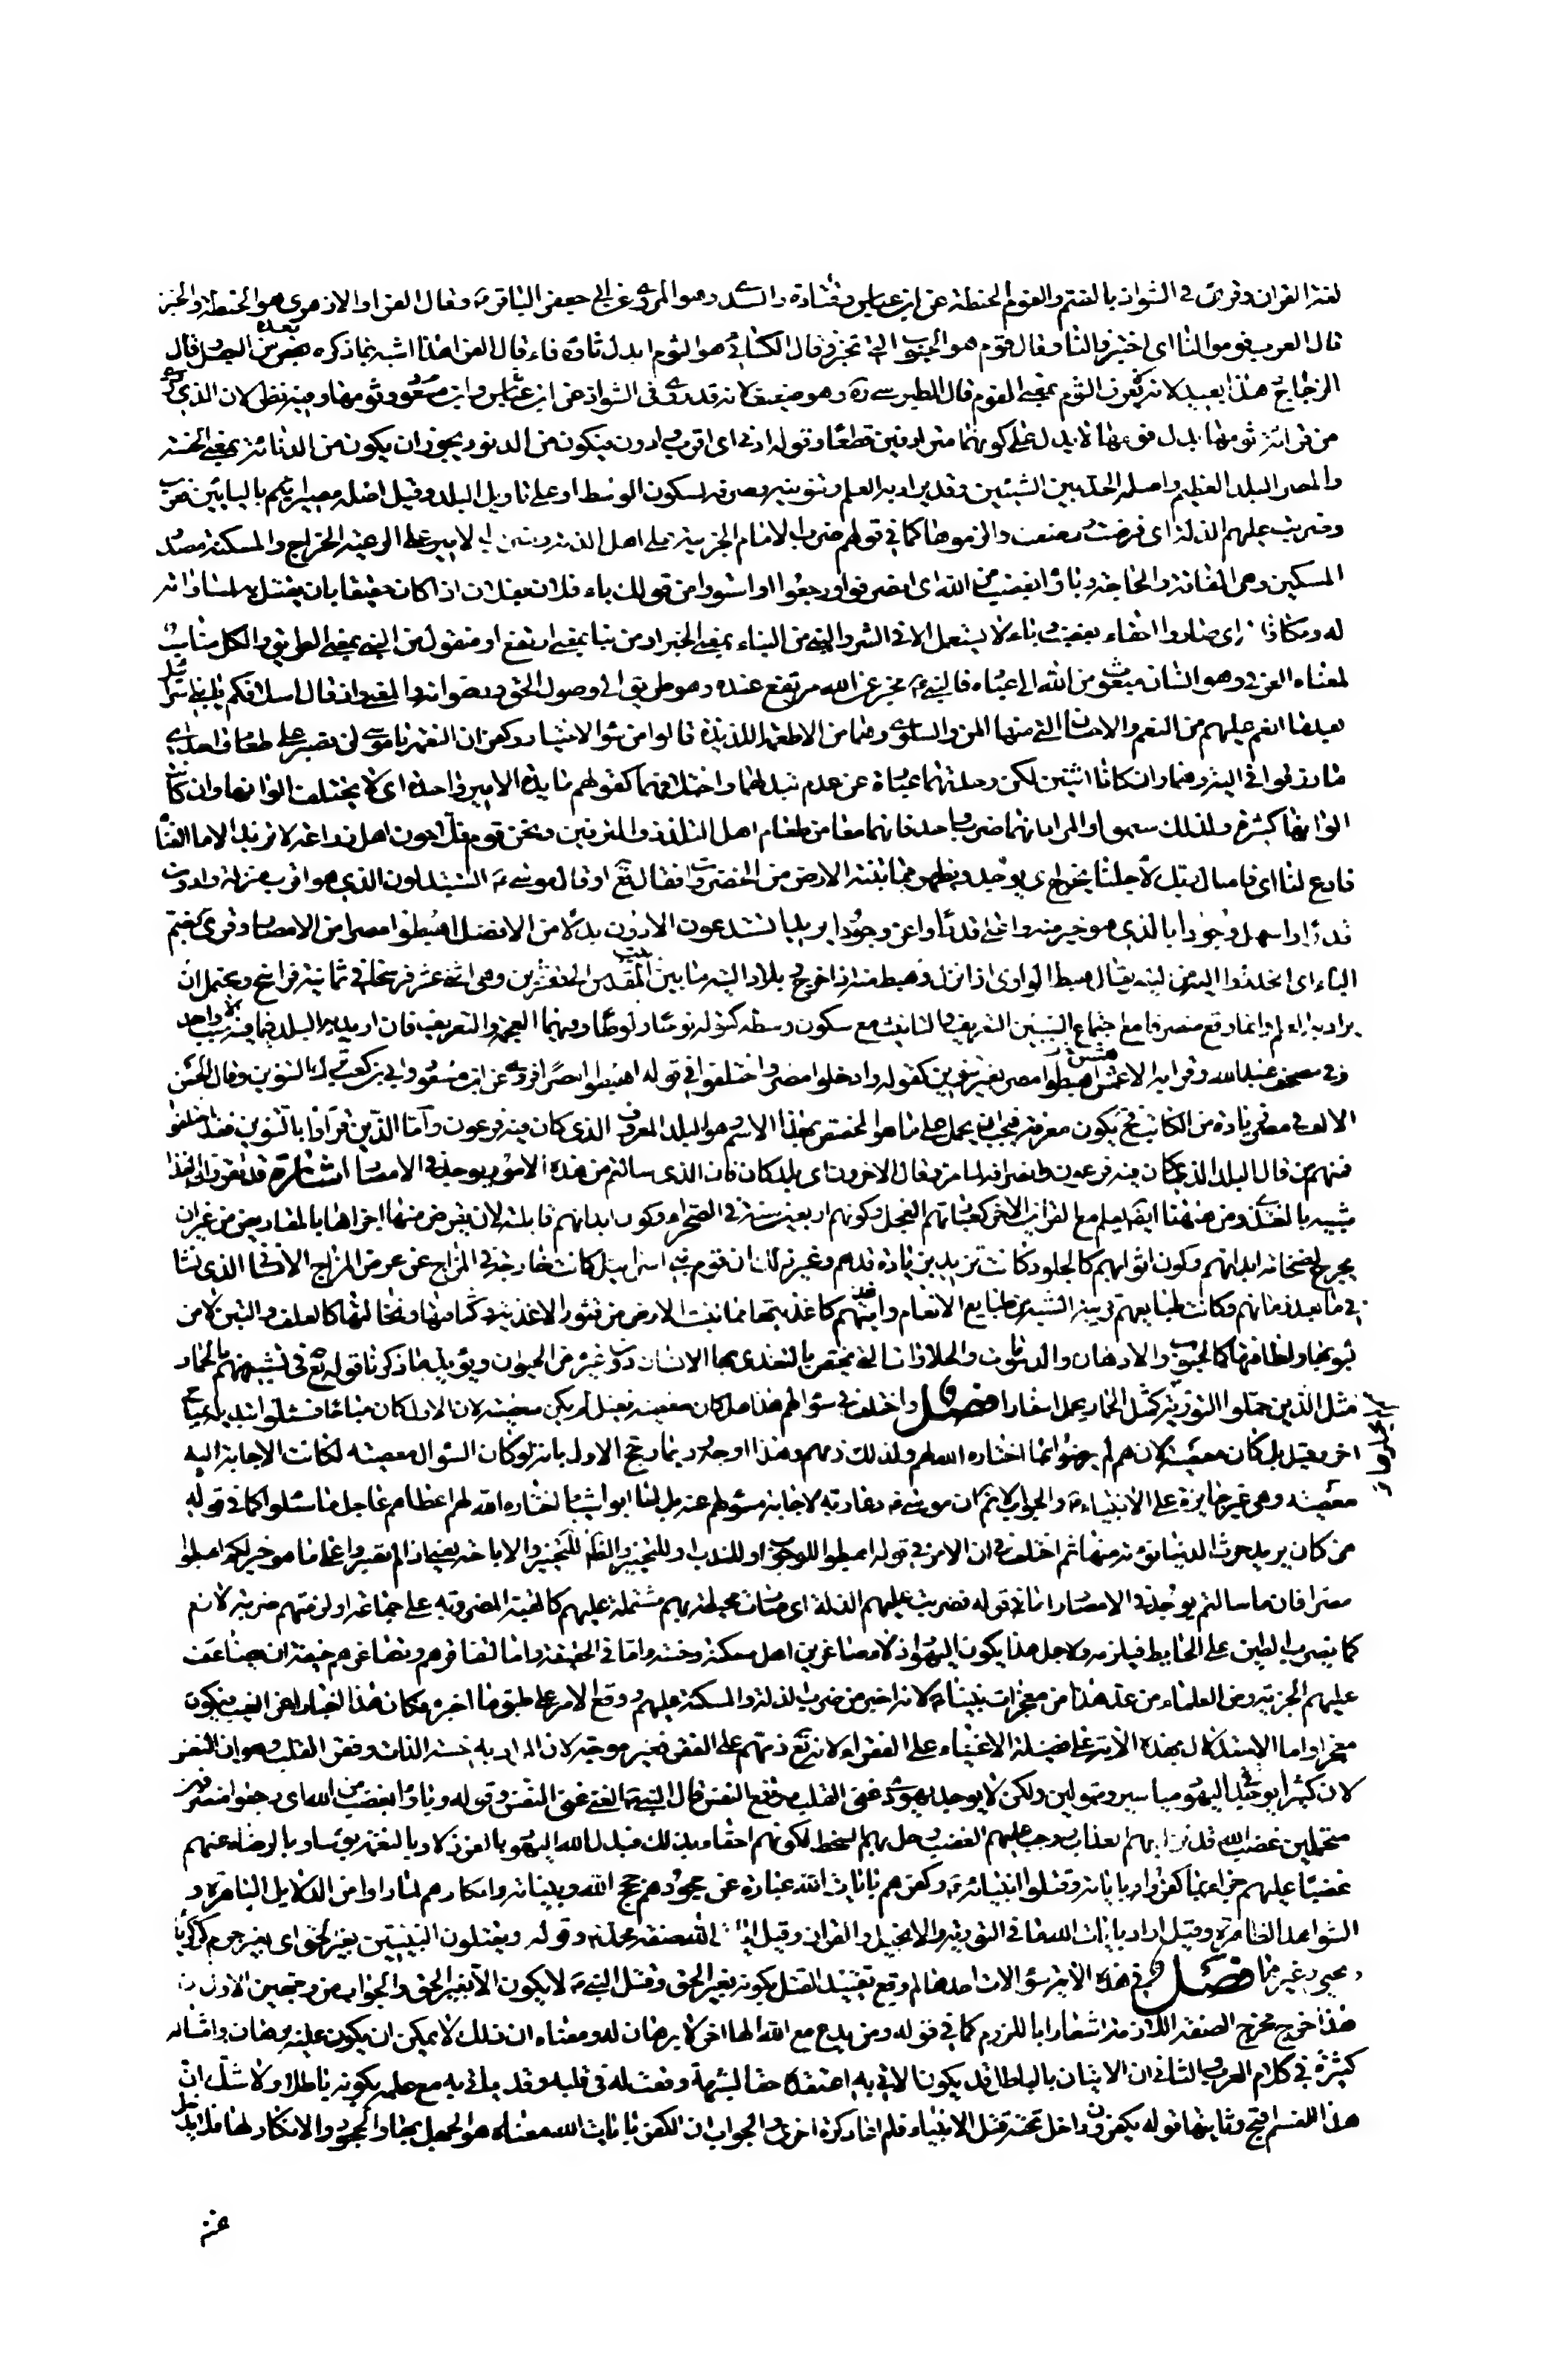 لغة القران وقرئ في الشواذ بالفتح والفوم الحنطة عن ابن عباس وقتادة والسدى وهو المروى عن ابى جعفر الباقر ع وقال الفراء والازهرى هو الحنطة والخبز
قال العرب فوموا لنا اى اختبزوا لنا وقال قوم هو الحبوب التى تخبز وقال الكسائى هو الثوم ابدل ثاؤه فاء قال الفراء هذا اشبه بما ذكره بعده من البصل قال
الزجاج هذا بعيد لانه لا يعرف الثوم بمعنى الفوم قال الطبرسى ره وهو ضعيف لانه قد روى في الشواذ عن ابن عباس وابن مسعود وثومها وفيه نظر لان الذى
من قرائة ثومها بدل فومها لا يدل على كونهما مترادفين قطعا وقوله ادنى اى اقرب وادون فيكون من الدنو ويجوز ان يكون من الدنائة بمعنى الخسة
والمصر البلد العظيم واصله الحد بين الشيئين وقد يراد به العلم وتنوينه وصرفه لسكون الوسط او على تاويل البلد وقيل اصله مصرايم بالبيائين فعرب
وضربت عليهم الذلة اى فرضت ووضعت والزموها كما في قولهم ضرب الامام الجزية على اهل الذمة وضرب الامير على الرعية الخراج والمسكنة مصدر
المسكين وهى الفاقة والحاجة وباؤا بغضب من الله اى انصرفوا ورجعوا او استووا من قولك باء فلان بفلان اذا كان حقيقا بان يقتل به لمساواته
له ومكافاته اى صاروا احقاء بغضبه وباء لا يستعمل الا في الشر والنبى من النباء بمعنى الخبر او من نبا بمعنى ارتفع او منقول من النبى بمعنى الطريق والكل مناسب
لمعناه العرفى وهو انسان مبعوث من الله الى عباده فالنبى ع مخبر عن الله مرتفع عنده وهو طريق الى وصول الحق ورضوانه والمعنى واذ قال اسلافكم يا بنى اسرائيل
بعد ما انعم عليهم من النعم والاحسان التى منها المن والسلوى وهما من الاطعمة اللذيذة قالوا من سوء الاختيار وكفران النعمة يا موسى لن نصبر على طعام واحد اى
ما رزقوا في التيه وهما وان كانا اثنين لكن وحدتهما عبارة عن عدم تبدلهما واختلافهما كقولهم مايدة الامير واحدة اى لا يختلف الوانها وان كانت
الوانها كثيرة ولذلك سموا والمراد انهما ضرب واحد فانهما معا من طعام اهل التلذذ والمترفين ونحن قوم فلاحون اهل زراعة لا نريد الا ما الفناه
فادع لنا اى فاسال ربك لاجلنا يخرج اى يوجد ويظهر مما تنبته الارض من الخضروات فقال تع او قال موسى ع اتستبدلون الذى هو اقرب منزلة وادون
قدرا واسهل وجودا بالذى هو خير منه واغلى قدرا واعز وجودا يريد اتستدعون الادون بدلا من الافضل اهبطوا مصرا من الامصار وقرئ بضم
الباء اى انحدروا اليه من التيه يقال هبط الوادى اذا نزل وهبط منه اذا خرج وبلاد التيه ما بين بيت المقدس الى قنسرين وهى اثنى عشر فرسخا في ثمانية فراسخ ويحتمل ان
يراد به العلم وانما وقع منصرفا مع اجتماع السببين التعريف والتانيث مع سكون وسطه كقوله نوحا ولوطا وفيهما العجمة والتعريف فان اريد به البلد فما فيه الا سبب واحد
وفى مصحف عبد الله وقراءة الاعمش اهبطوا مصر بغير تنوين كقوله وادخلوا مصر واختلفوا في قوله اهبطوا مصرا فروى عن ابن مسعود وابى بن كعب ترك التنوين وقال الحسن
الالف في مصر زيادة من الكاتب فح يكون معرفة فيجب ان يحمل على ما هو المختص بهذا الاسم وهو البلد المعروف الذى كان فيه فرعون واما الذين قراوا بالتنوين فقد اختلفوا
فمنهم من قال البلد الذى كان فيه فرعون وانصرافه لما مر وقال الاخرون اى بلد كان فان الذى سالتم من هذه الامور يوجد في الامصار اشارة
شبيه بالعسل ومن ههنا ايضا يعلم مع القرائن الاخر كعبادتهم العجل وكونهم اربعين سنة في الصحراء وكون ابدانهم قابلة لان يقرض منها اجزاها بالمقاريض من غير ان
يجرح لضخامة ابدانهم وكون اثوابهم كالجلود كانت تزيد بزيادة قدهم وغير ذلك ان قوم بنى اسرائيل كانت خارجة في المزاج عن عرض المزاج الانسانى الذى نشا
في ما بعد زمانهم وكانت طبايعهم قريبة الشبه من طبايع الانعام وابدانهم كاغذيتها مما تنبت الارض من قشور الاغذية وحثالتها ونخالتها كالعلف والتبن لا من
لبوبها ولطائفها كالحبوب والادهان والدسومات والحلاوات التى يختص بالتغذى بها الانسان دون غيره من الحيوان ويؤيد ما ذكرنا قوله تع في تشبيههم بالحمار
مثل الذين حملوا التورية كمثل الحمار يحمل اسفارا فصل واختلف في سؤالهم هذا هل كان معصية فقيل لم يكن معصية لان الاول كان مباحا فسئلوا تبديله بمباح
اخر وقيل بل كان معصية لانهم لم يرضوا بما اختاره الله لهم ولذلك ذمهم وهذا اوجه وربما رجح الاول بانه لو كان السؤال معصية لكانت الاجابة اليه
معصية وهى غير جايزة على الانبياء ع والجواب لا نم ان موسى ع دعا ربه لاجابة مسئولهم عنه بل لما ابوا شيئا اختاره الله لهم اعطاهم عاجل ما سئلوا كما في قوله
من كان يريد حرث الدنيا نؤته منها ثم اختلف في ان الامر في قوله اهبطوا للوجوب او للندب او للتخيير والظاهر للتخيير والاباحة يعنى اذا لم تصبروا على ما هو خير لكم اهبطوا
مصرا فان ما سالتم يوجد في الامصار اما في قوله فضربت عليهم الذلة اى صارت محيطة بهم مشتملة عليهم كالقبة المضروبة على جماعة او لزمتهم ضربة لازم
كما يضرب الطين على الحايط فيلزمه ولاجل هذا يكون اليهود اذلاء صاغرين اهل مسكنة وخسة واما في الحقيقة واما لتفاقرهم وتصاغرهم خيفة ان يضاعف
عليهم الجزية ومن العلماء من عد هذا من معجزات نبينا ص لانه اخبر من ضرب الذلة والمسكنة عليهم ووقع الامر على طبق ما اخبر فكان هذا اخبارا عن الغيب فيكون
معجزا واما الاستدلال بهذه الاية على فضيلة الاغنياء على الفقراء لانه تع ذمهم على الفقر فغير موجه لان المراد به خسة الذات وفقر القلب وهو ان النفس
لان كثيرا يوجد في اليهود مياسير ومتمولين ولكن لا يوجد يهودى غنى القلب مرتفع النفس قال النبى ص الغنى غنى النفس وقوله وباؤا بغضب من الله اى رجعوا منصرفين
متحملين غضب الله قد نزل بهم العذاب ووجب عليهم الغضب وحل بهم السخط لكونهم احقاء بذلك فبدل الله اليهود بالعز ذلا وبالنعمة بؤسا وبالرضاء عنهم
غضبا عليهم جزاء بما كفروا باياته وقتلوا انبيائه ع وكفرهم بايات الله عبارة عن جحودهم حجج الله وبيناته وانكارهم لما راوا من الدلايل الباهرة و
الشواهد الظاهرة وقيل اراد بايات الله ما في التورية والانجيل والقران وقيل ايات الله صفة محمد ص وقوله ويقتلون النبيين بغير الحق اى بغير جرم كزكريا
ويحيى وغيرهما فصل في هذه الاية سؤالات احدها لم وقع تقييد القتل بكونه بغير الحق وقتل النبى ع لا يكون الا بغير الحق والجواب من وجهين الاول ان
هذا خرج مخرج الصفة اللازمة اشعارا باللزوم كما في قوله ومن يدع مع الله الها اخر لا برهان له ومعناه ان ذلك لا يمكن ان يكون عليه برهان وامثاله
كثيرة في كلام العرب والثانى ان الاتيان بالباطل قد يكون لان الاتى به اعتقده حقا لشبهة وقعت له في قلبه وقد ياتى به مع علمه بكونه باطلا ولا شك ان
هذا القسم اقبح وثانيها قوله يكفرون داخل تحته قتل الانبياء فلم اعاد ذكره اخرى والجواب ان الكفر بايات الله معناه هو الجهل بها والجحود والانكار لها فلا يدخل